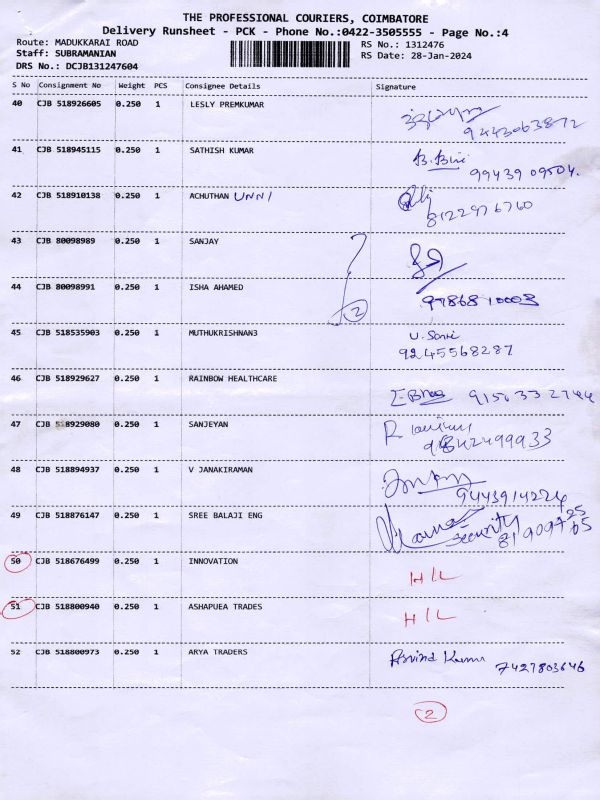 THE PROFESSIONAL COURIERS, COIMBATORE
Delivery Runsheet - PCK - Phone No.:0422-3505555 - Page No.:4
Route: MADUKKARAI ROAD RS No.: 1312476
Staff: SUBRAMANIAN RS Date: 28-Jan-2024
DRS No.: DCJB131247604
S No Consignment No Weight PCS Consignee Details Signature
40 CJB 518926605 0.250 1 LESLY PREMKUMAR
9443063872
41 CJB 518945115 0.250 1 SATHISH KUMAR
9943909504.
42 CJB 518910138 0.250 1 ACHUTHAN UNNI
8122976760
43 CJB 80098989 0.250 1 SANJAY
44 CJB 80098991 0.250 1 ISHA AHAMED
2 9786810003
45 CJB 518535903 0.250 1 MUTHUKRISHNAN3
9245568287
46 CJB 518929627 0.250 1 RAINBOW HEALTHCARE
47 CJB 518929080 0.250 1 SANJEYAN
9842499933
48 CJB 518894937 0.250 1 V JANAKIRAMAN
9443914224
49 CJB 518876147 0.250 1 SREE BALAJI ENG
Security
50 CJB 518676499 0.250 1 INNOVATION
H/L
51 CJB 518800940 0.250 1 ASHAPUEA TRADES
H/L
52 CJB 518800973 0.250 1 ARYA TRADERS
Arvind Kumar 7427803646
2